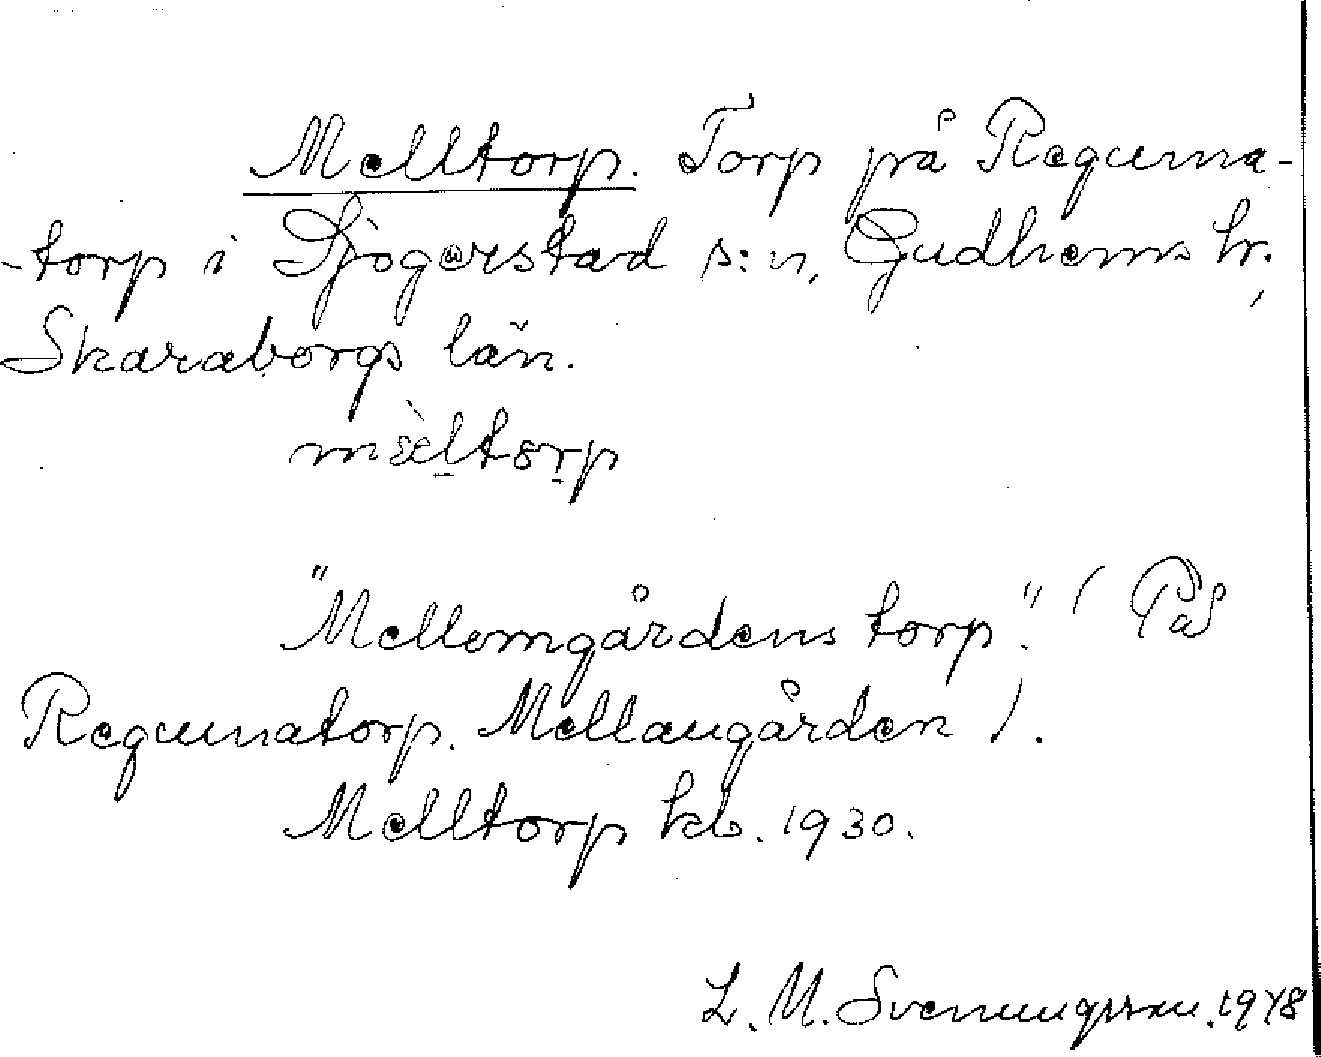 Melltorp. Torp på Reguma-
-torp i Sjogerstad s:n, Gudhems hr.,
Skaraborgs län.
mèltorp
"Mellomgårdens torp". (På
Regumatorp. Mellangården).
Melltorp kb. 1930.
L. M. Svenungsson. 1948